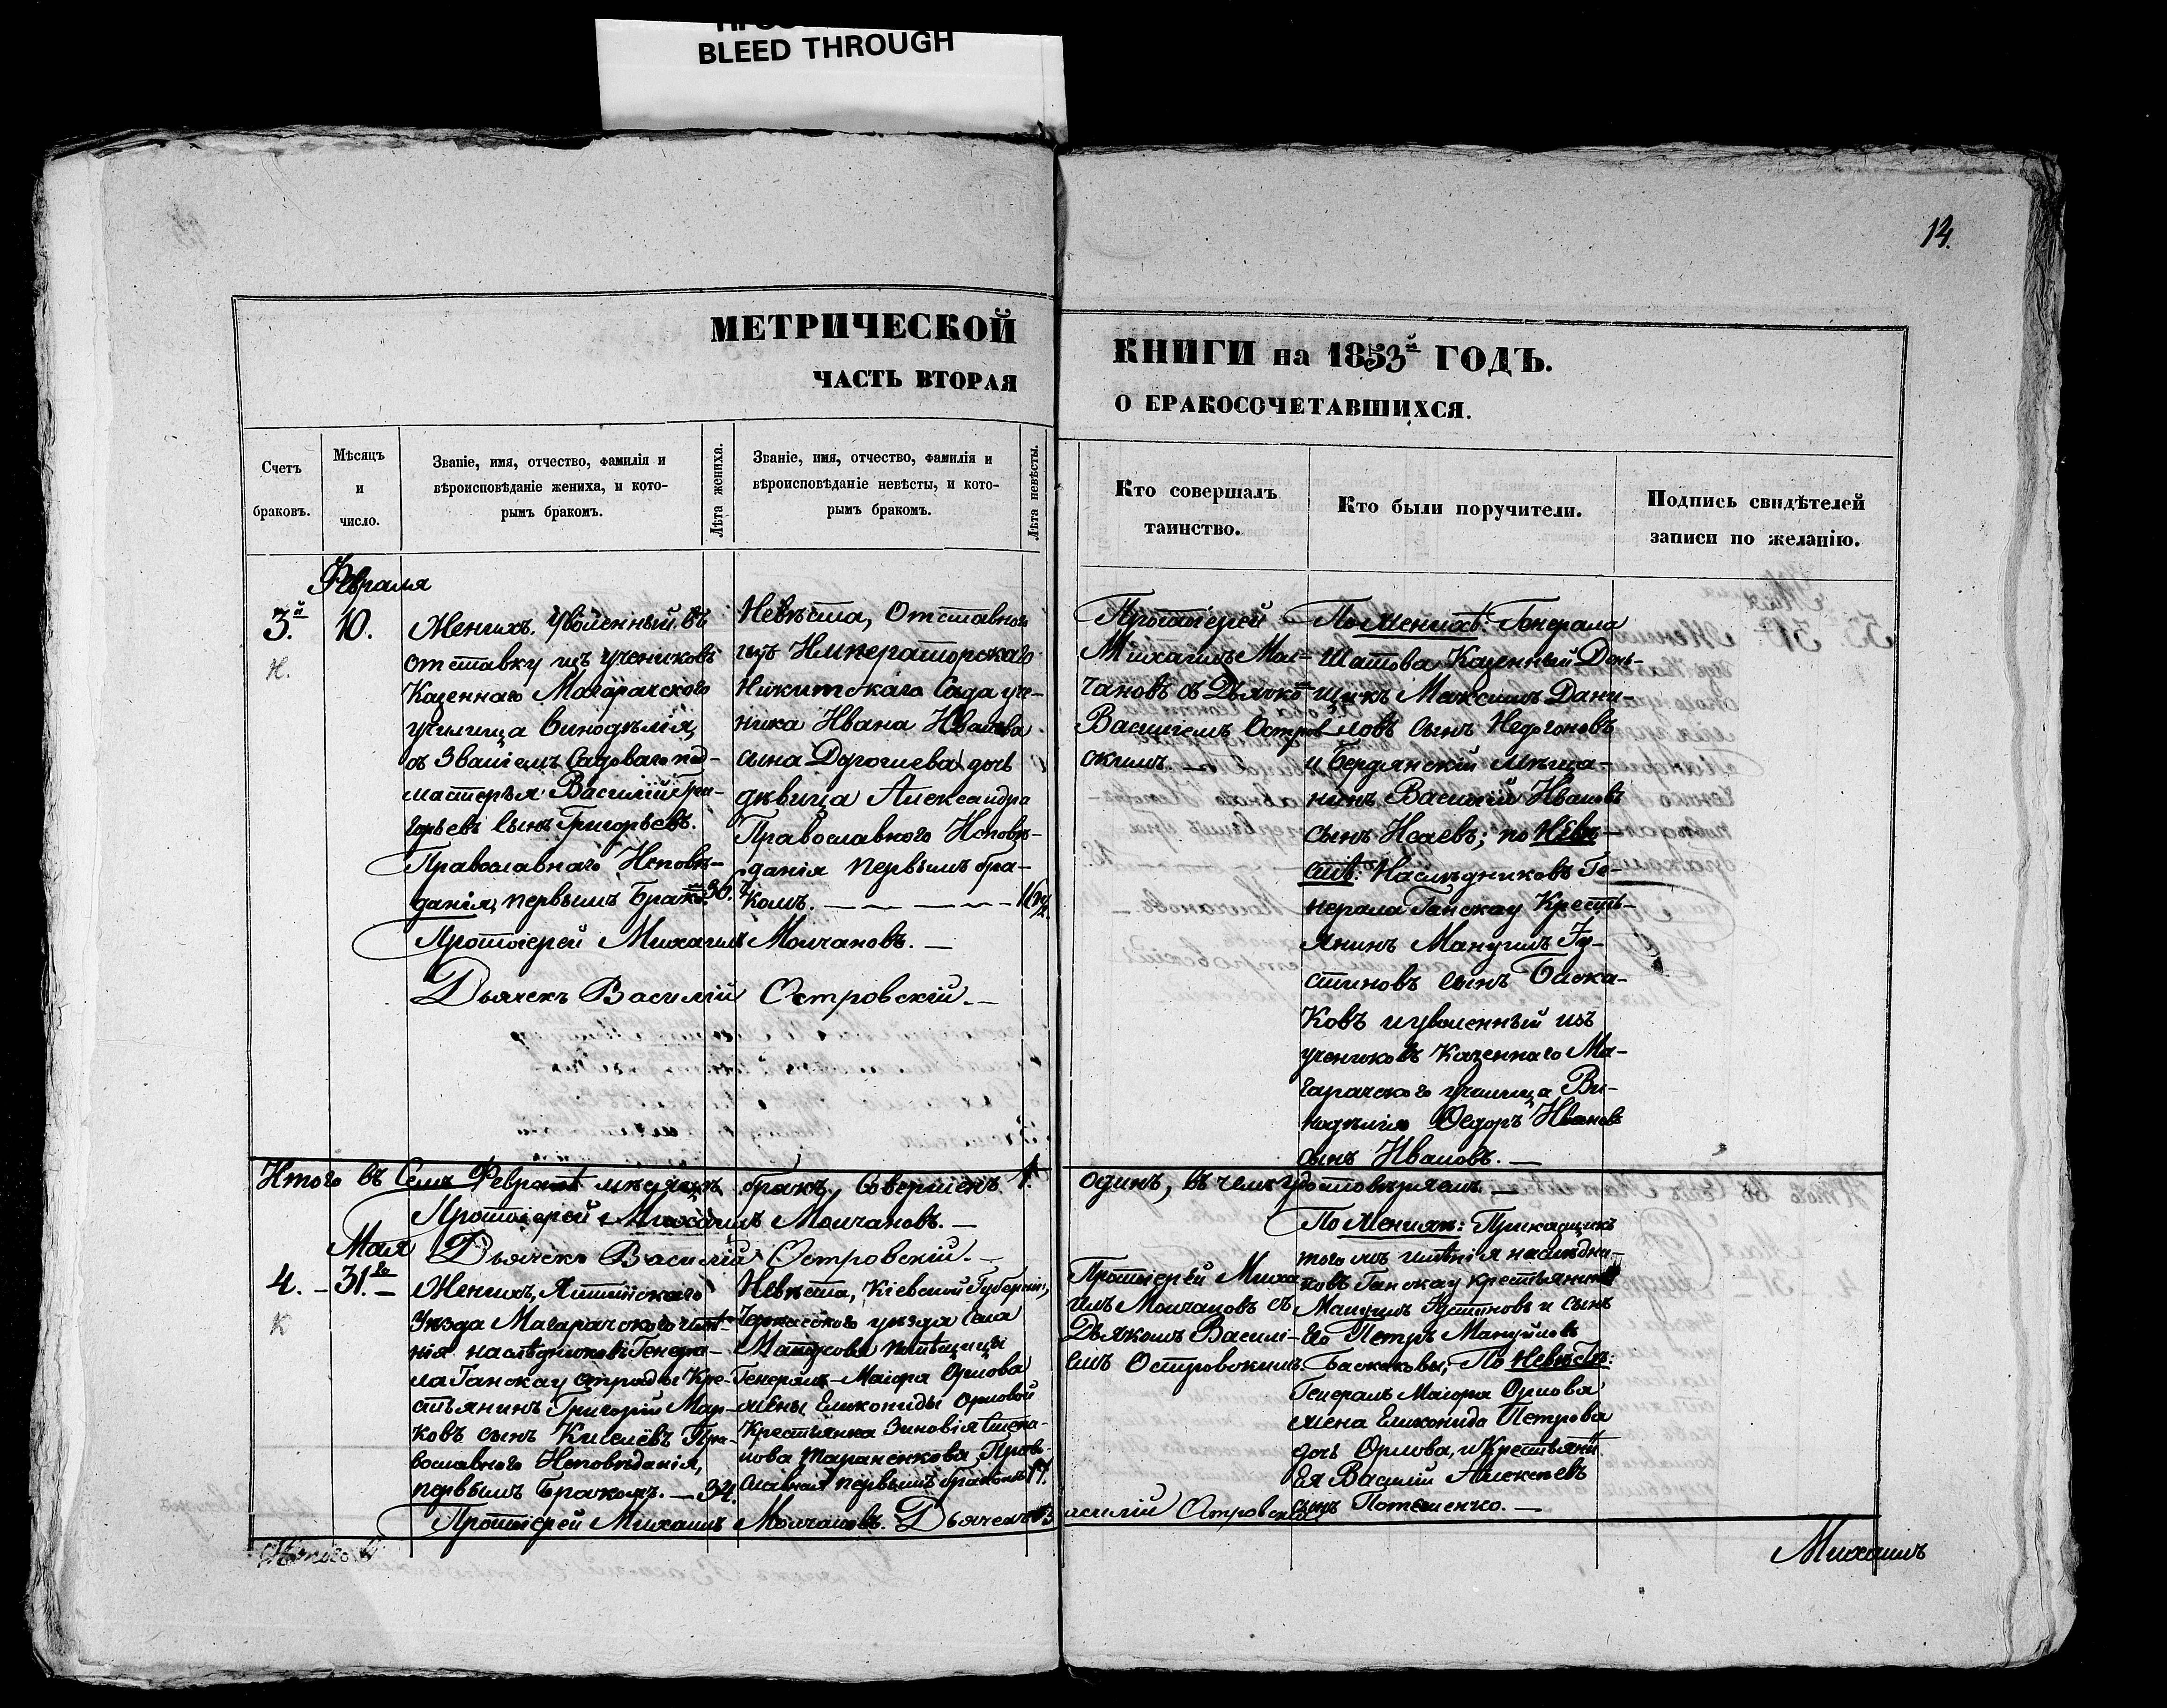 BLEED THROUGH
14.
МЕТРИЧЕСКОЙ
ЧАСТЬ ВТОРАЯ
КНИГИ на 1853й ГОДЪ.
О БРАКОСОЧЕТАВШИХСЯ.
Счетъ
браковъ.
Мѣсяцъ
и
число.
Званіе, имя, отчество, фамилія и
вѣроисповѣданіе жениха, и кото-
рымъ бракомъ.
Лѣта жениха.
Званіе, имя, отчество, фамилія и
вѣроисповѣданіе невѣсты, и кото-
рымъ бракомъ.
Лѣта невѣсты.
Кто совершалъ
таинство.
Кто были поручители.
Подпись свидѣтелей
записи по желанію.
Февраля
3.й
Н.
10.
Женихъ. Уволенный въ
отставку изъ учениковъ
Казеннаго Магарачскаго
училища Винодѣлія,
съ Званіемъ Садоваго под-
мастерья Василій Гри-
горьевъ сынъ Григорьевъ.
Православнаго Исповѣ-
данія, первымъ Брако=
30.
Невѣста, Отставнаго
изъ Императорскаго
Никитскаго Сада уче-
ника Ивана Иванова
сына Дурогиева дочь
дѣвица Александра
Православного Исповѣ-
данія первымъ бра-
комъ.
16 1/2.
Протоіерей
Михаилъ Мол=
чановъ съ Дьячко=
Василіемъ Остров-
скимъ.
По Женихѣ: Генерала
Шатова Казенный День-
щикъ Максимъ Дани-
ловъ сынъ Недогоновъ
и Бердянскій мѣща-
нинъ Василій Ивановъ
сынъ Исаевъ; по Невѣ-
стѣ: Наслѣдниковъ Ге-
нерала Ганскау Кресть-
янинъ Мануилъ Iу-
стиновъ сынъ Баска-
ковъ и уволенный изъ
учениковъ Казеннаго Ма-
гарачскаго училища Ви-
нодѣлія Ѳедоръ Ивановъ
сынъ Ивановъ.
Протоіерей Михаилъ Молчановъ.
Дьячекъ Василій Островскій.
Итого въ Семъ Февралѣ мѣсяцѣ бракъ, Совершенъ 1. одинъ, въ чемъ удостовѣряемъ.
Протоіерей Михаилъ Молчановъ.
Дьячекъ Василій Островскій.
Мая
4.
К
31го
Женихъ, Ялтинскаго
Уѣзда Магарачскаго имѣ-
нія наслѣдниковъ Генера-
ла Ганскау Кре-
стьянинъ Григорій Мар-
ковъ сынъ Киселёвъ Пра-
вославнаго Исповѣданія,
первымъ Бракомъ.
34.
Невѣста, Кіевской Губерніи,
Черкасскаго уѣзда Села
помѣщицы
Генералъ-Маіора Орлова
жены Еликониды Орловой
Крестьянка Зиновія Степа-
нова Тараненкова, Право-
славная первымъ бракомъ
17.
Протоіерей Миха
илъ Молчановъ съ
Дьячкомъ Василі-
емъ Островскимъ.
По Женихѣ: Прикащикъ
того жъ имѣнія наслѣдни-
ковъ Ганскау крестьянинъ
Мануилъ Iустиновъ и сынъ
Его Петръ Мануйловъ
Баскаковы; По Невѣстѣ:
Генералъ Маіора Орлова
жена Еликонида Петрова
дочь Орлова, и Крестьянинъ
Ея Василій Алексѣевъ
сынъ Потапенко.
Протоіерей Михаилъ Молчановъ. Дьячекъ Василій Островскій
Итого въ
Михаилъ